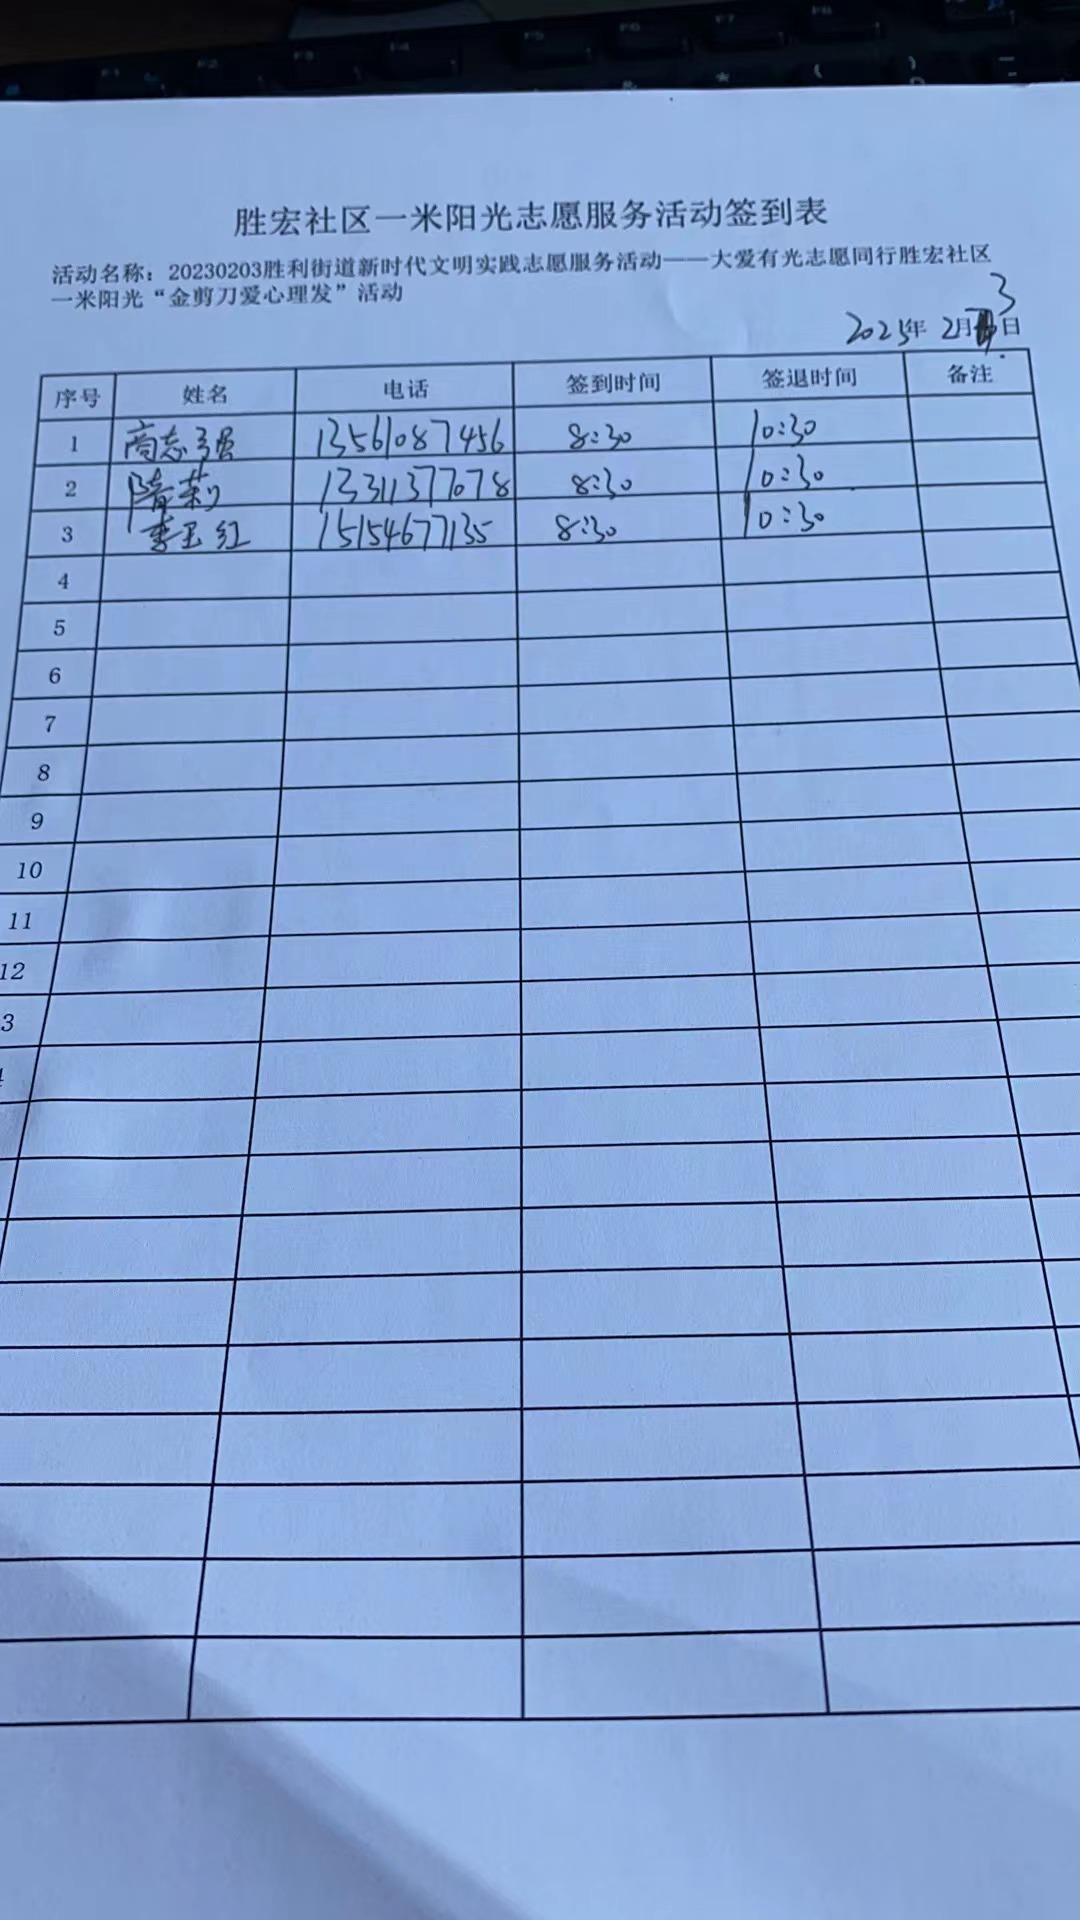 胜宏社区一米阳光志愿服务活动签到表
活动名称：20230203胜利街道新时代文明实践志愿服务活动——大爱有光志愿同行胜宏社区
一米阳光“金剪刀爱心理发”活动
2023年 2月3日
序号 姓名 电话 签到时间 签退时间 备注
1 商志强 13561087456 8:30 10:30
2 隋莉 13311377078 8:30 10:30
3 李玉红 15154677135 8:30 10:30
4
5
6
7
8
9
10
11
12
3